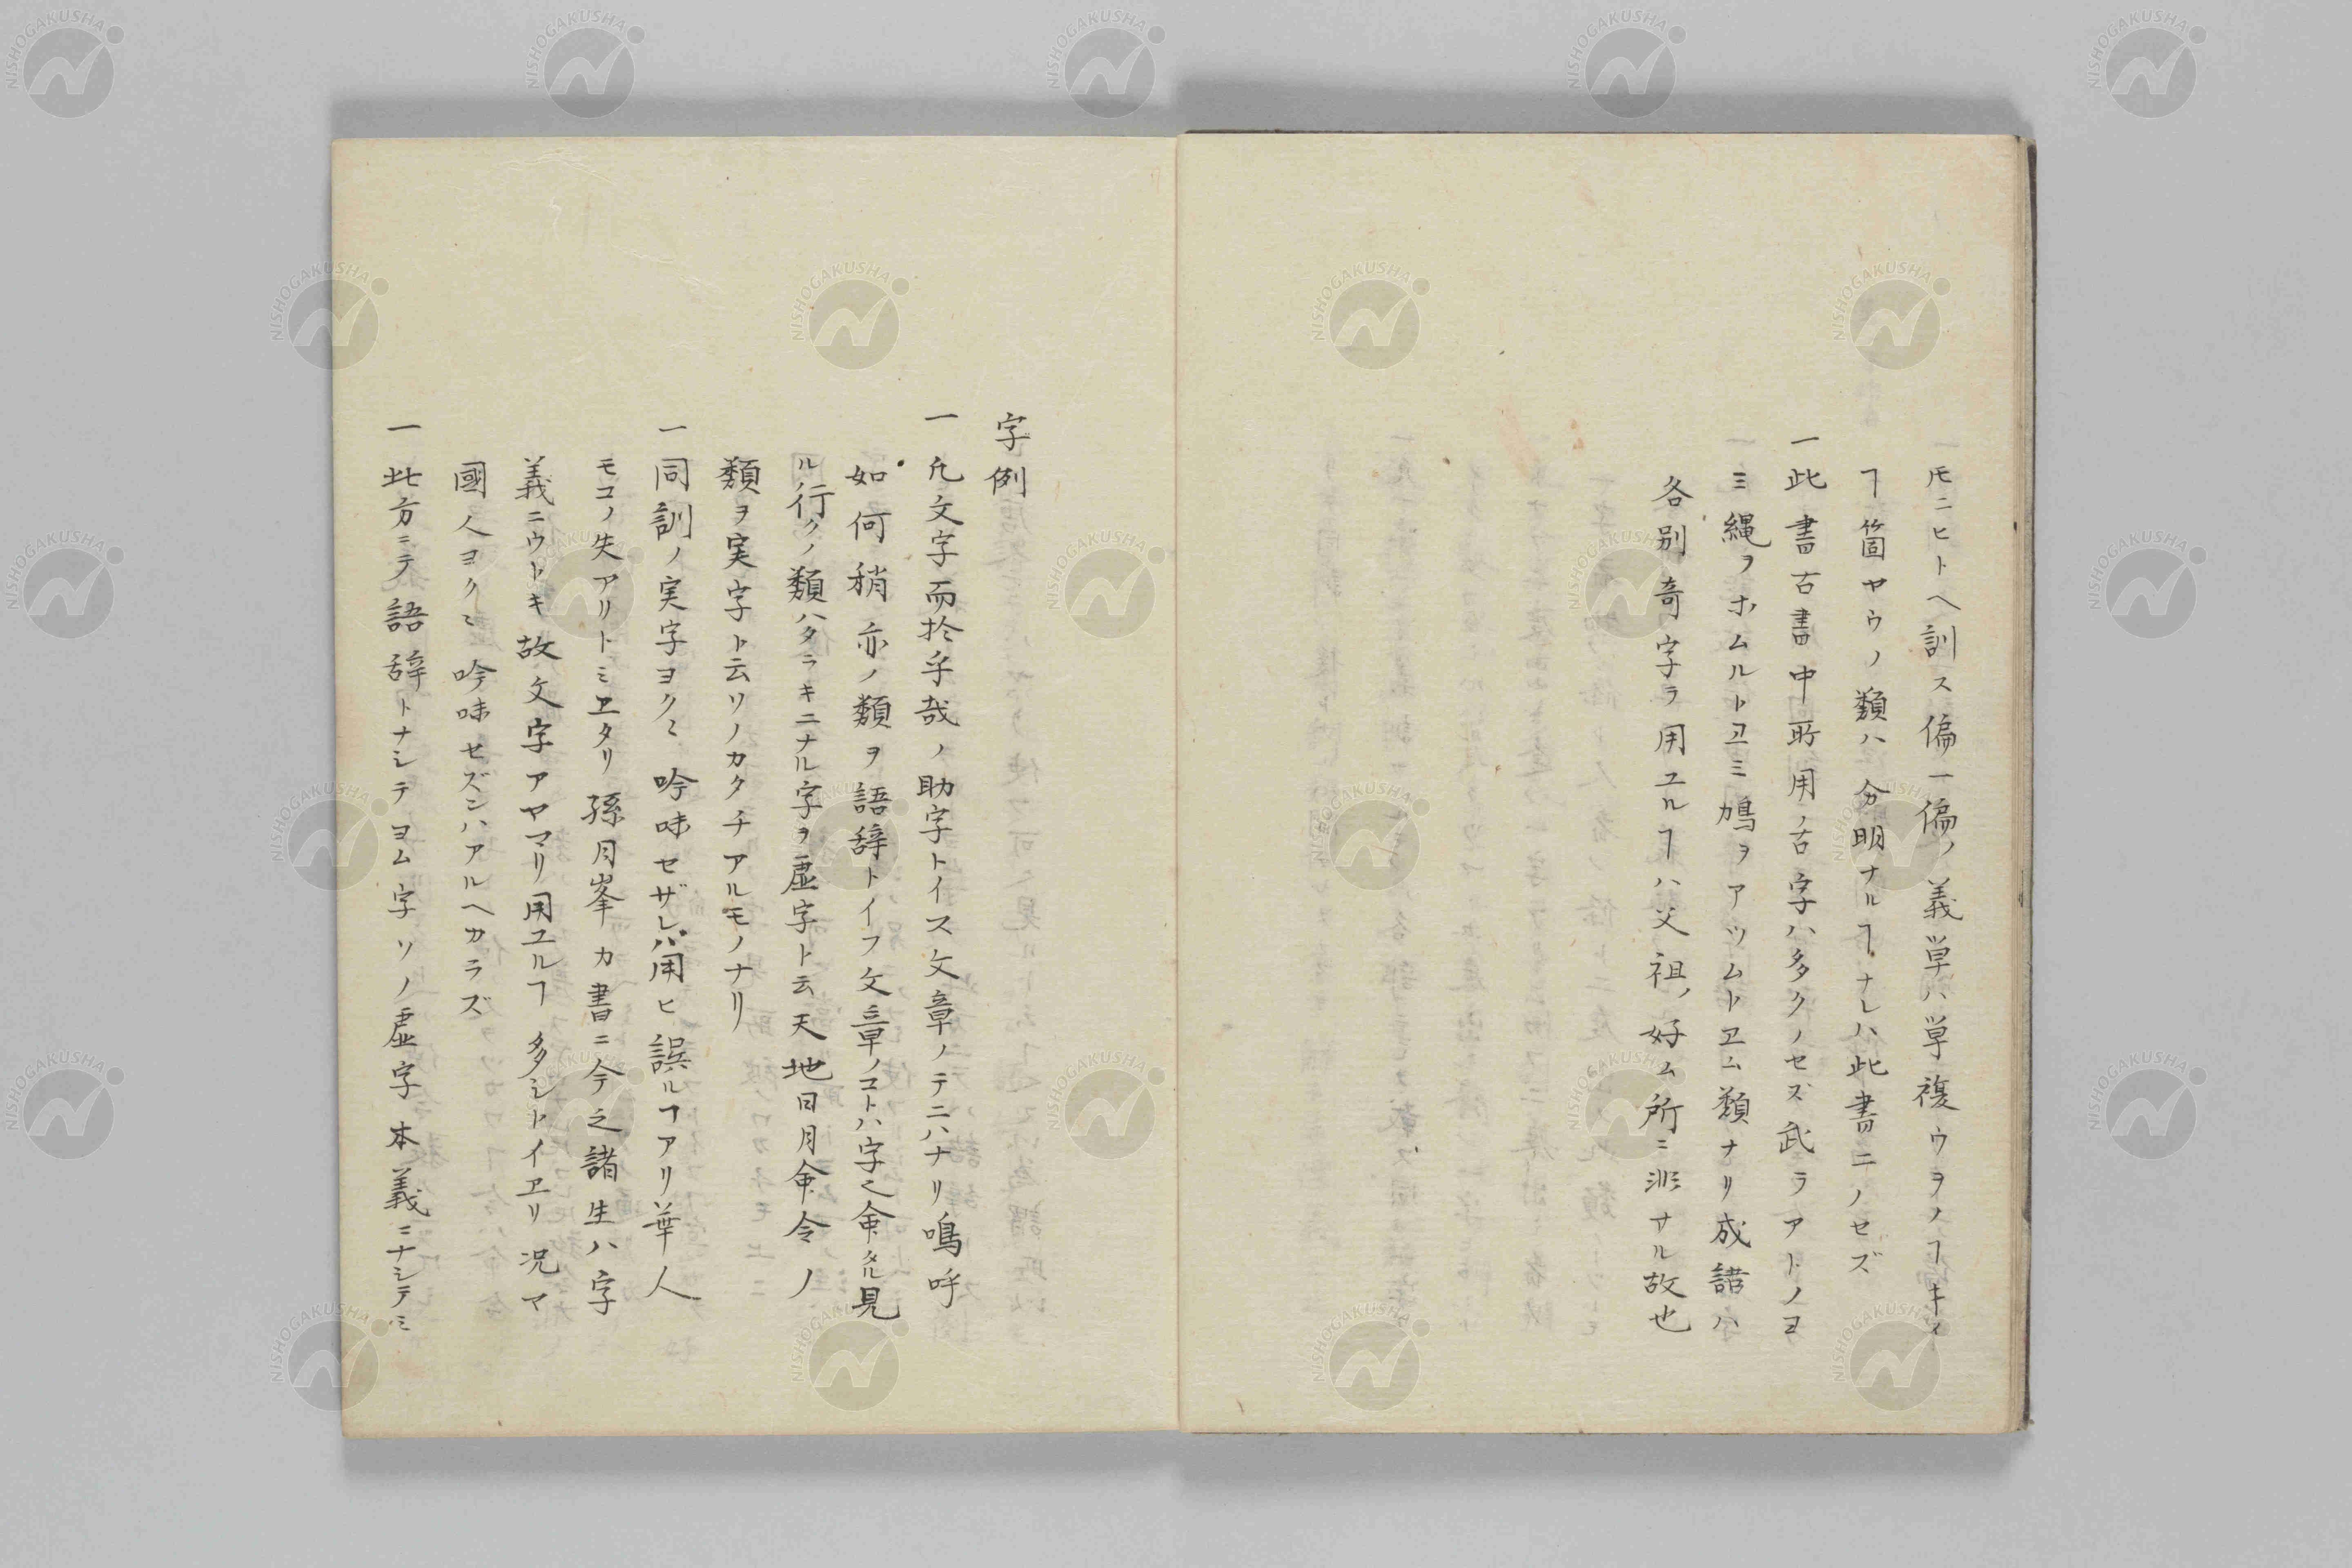 𪜈ニヒトヘ訓ス偏一偏ノ義単ハ単複ウヲノヿキイ
ヿ箇ヤウノ類ハ分明ナルヿナレハ此書ニノセズ
一此書古書中所用ノ古字ハ多クノセズ武ヲアトノヨ
ミ縄ヲホムルトヨミ鳩ヲアツムトヨム類ナリ成語ハ
各別奇字ヲ用ユルヿハ父祖ノ好ム所ニ非サル故也
字例
一凡文字而於乎哉ノ助字トイス文章ノテニハナリ鳴呼
如何稍亦ノ類ヲ語辞トイフ文章ノコトハ字之命タル見
ル行クノ類ハタラキニナル字ヲ虚字ト云天地日月命令ノ
類ヲ実字ト云ソノカタチアルモノナリ
一同訓ノ実字ヨクミ吟味セザレハ用ヒ誤ルヿアリ華人
モコノ失アリトミヱタリ孫月峯カ書ニ今之諸生ハ字
義ニウトキ故文字アヤマリ用ユルヿ多シトイヱリ况マ
國人ヨクミ吟味セズンハアルヘカラズ
一此方ニテ語辞トナシテヨム字ソノ虚字本義ニナシテミ